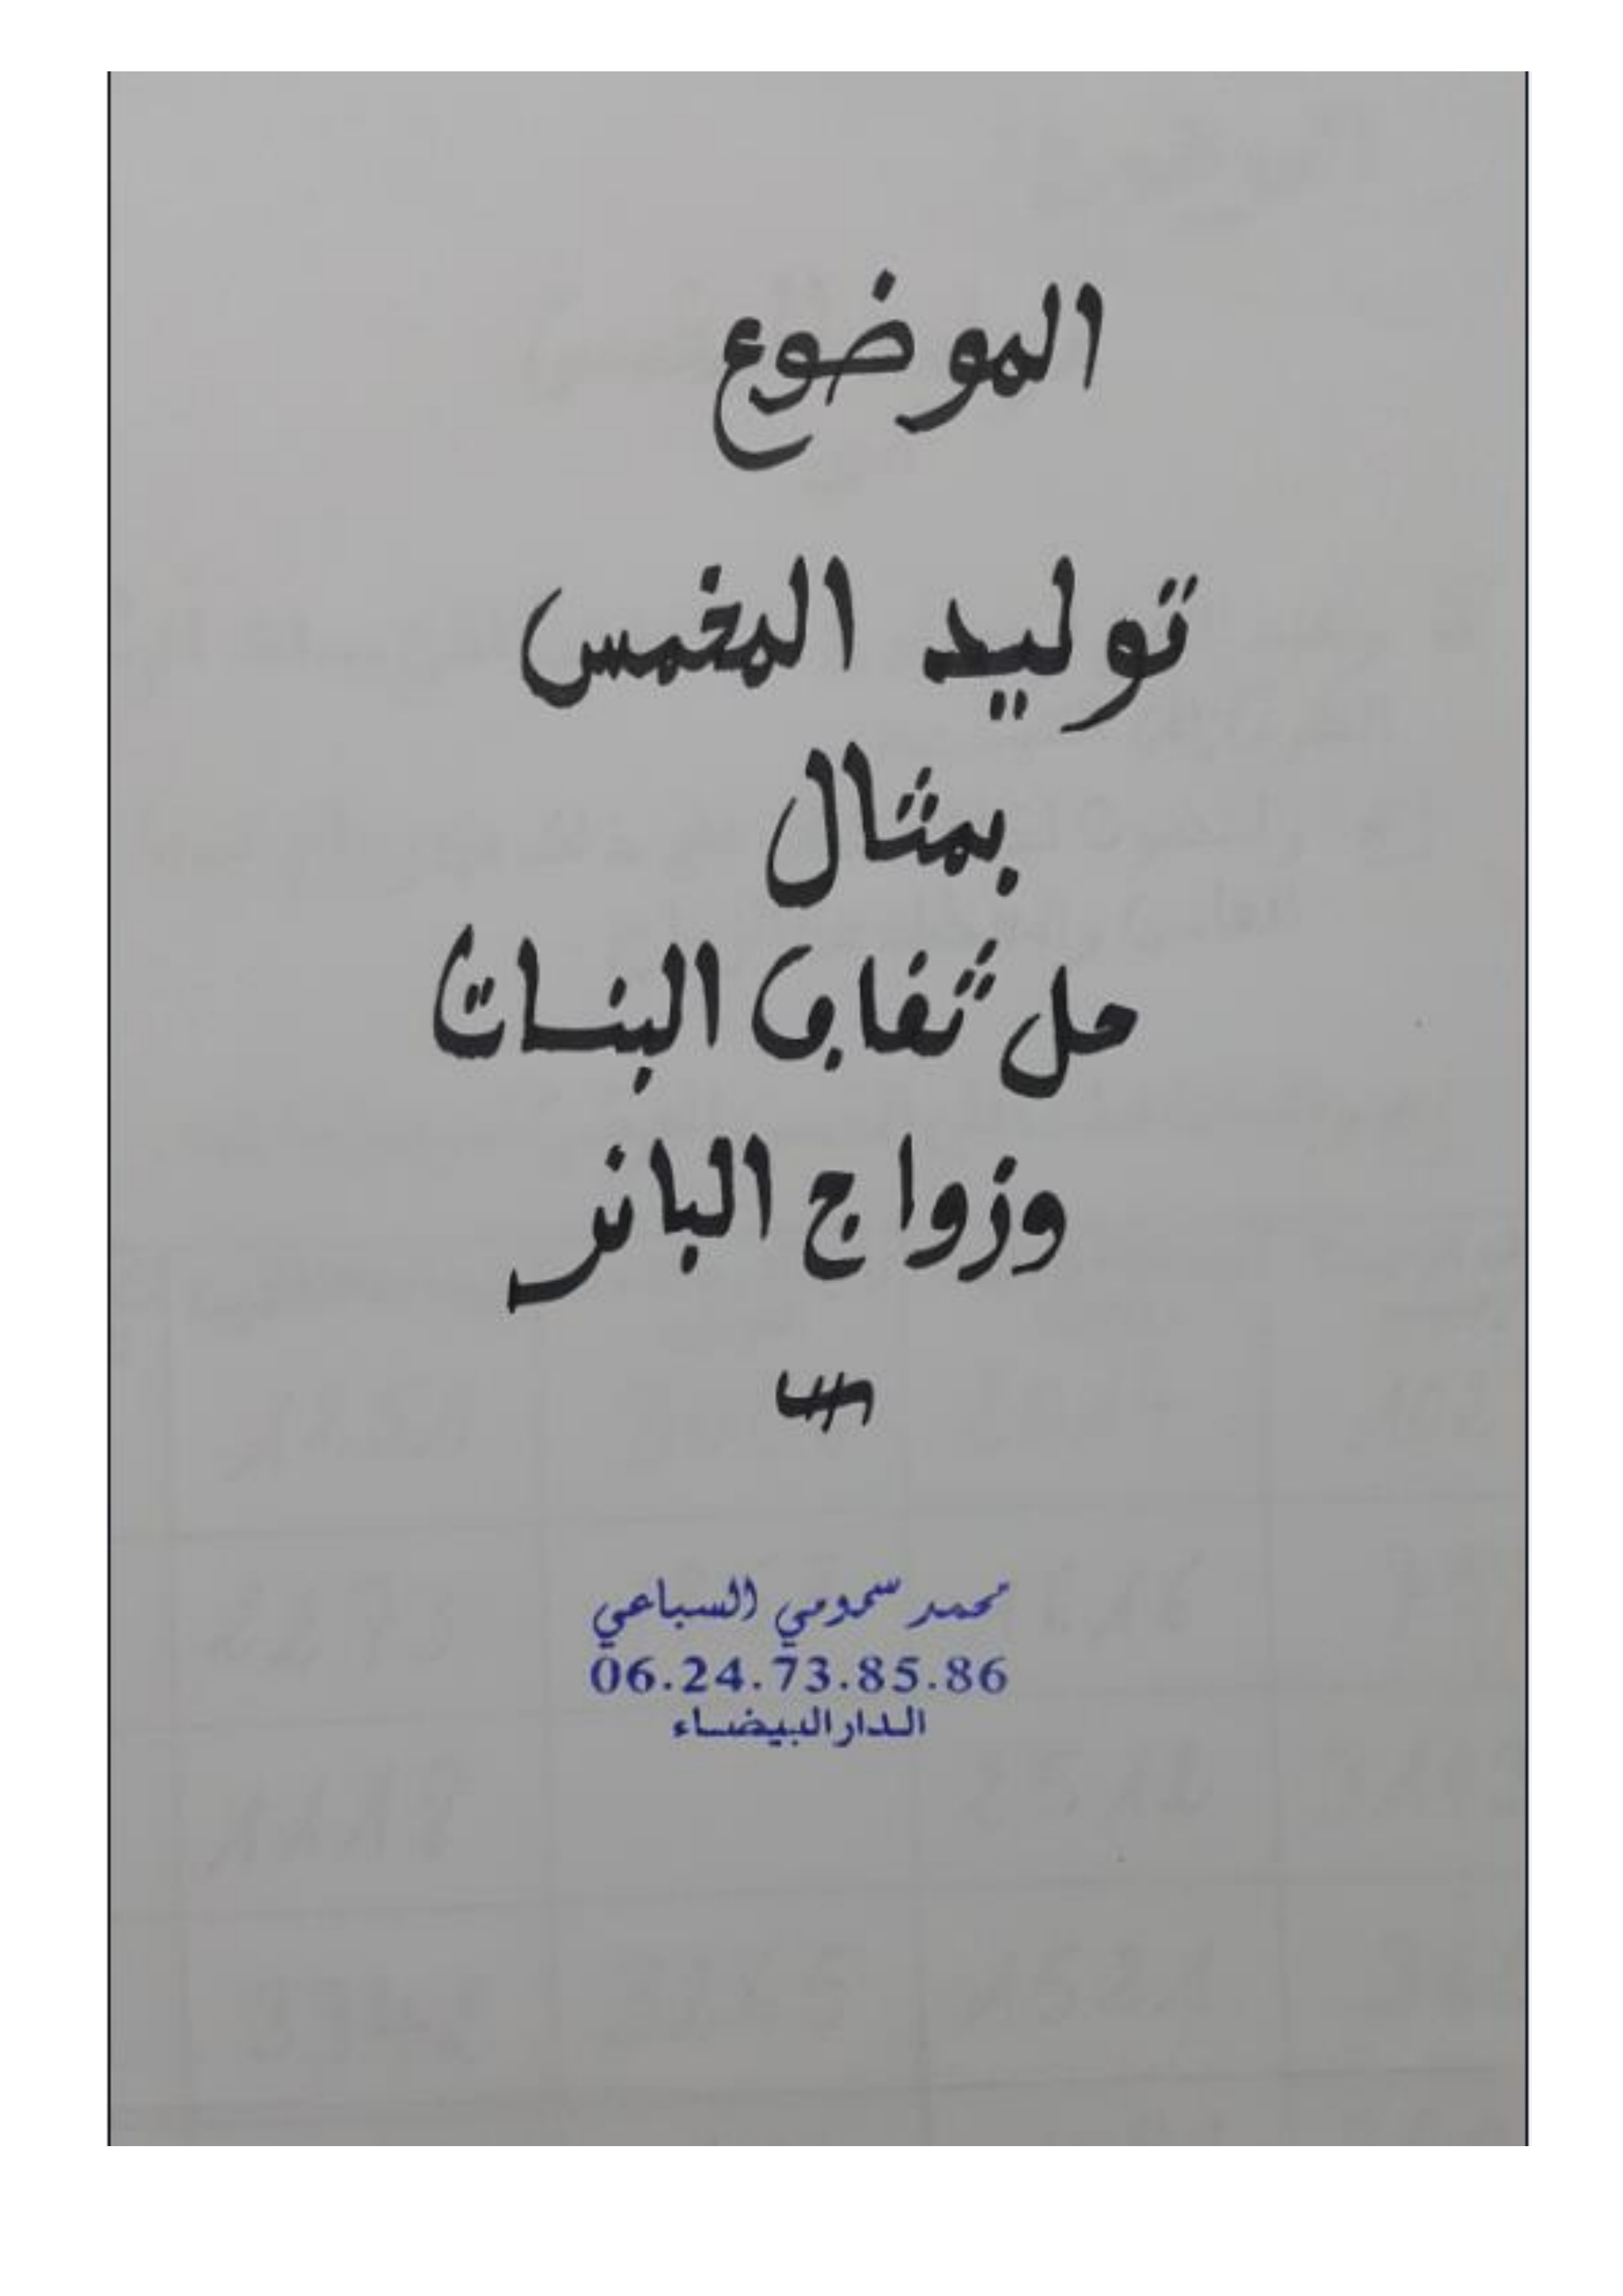 الموضوع
توليد المخمس
بمثال
حل ثقاف البنات
وزواج البائر
محمد سمومي السباعي
06.24.73.85.86
الدار البيضاء